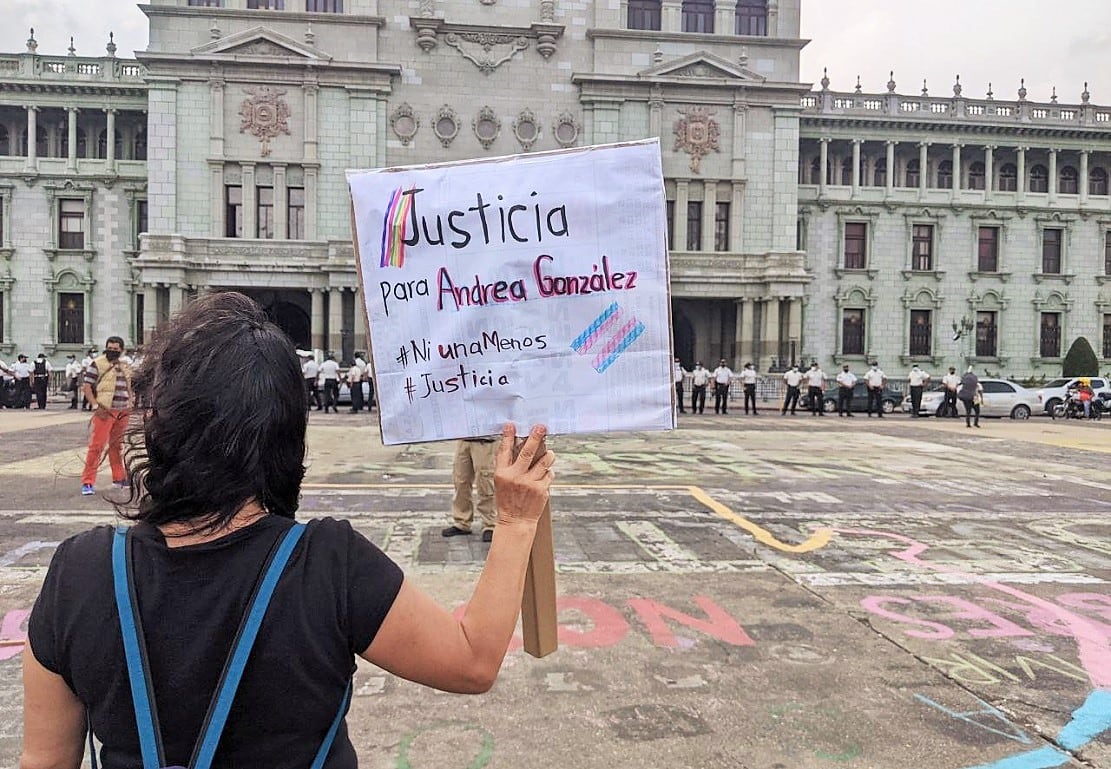 Justicia
para Andrea González
#Ni unaMenos
#Justicia
NO